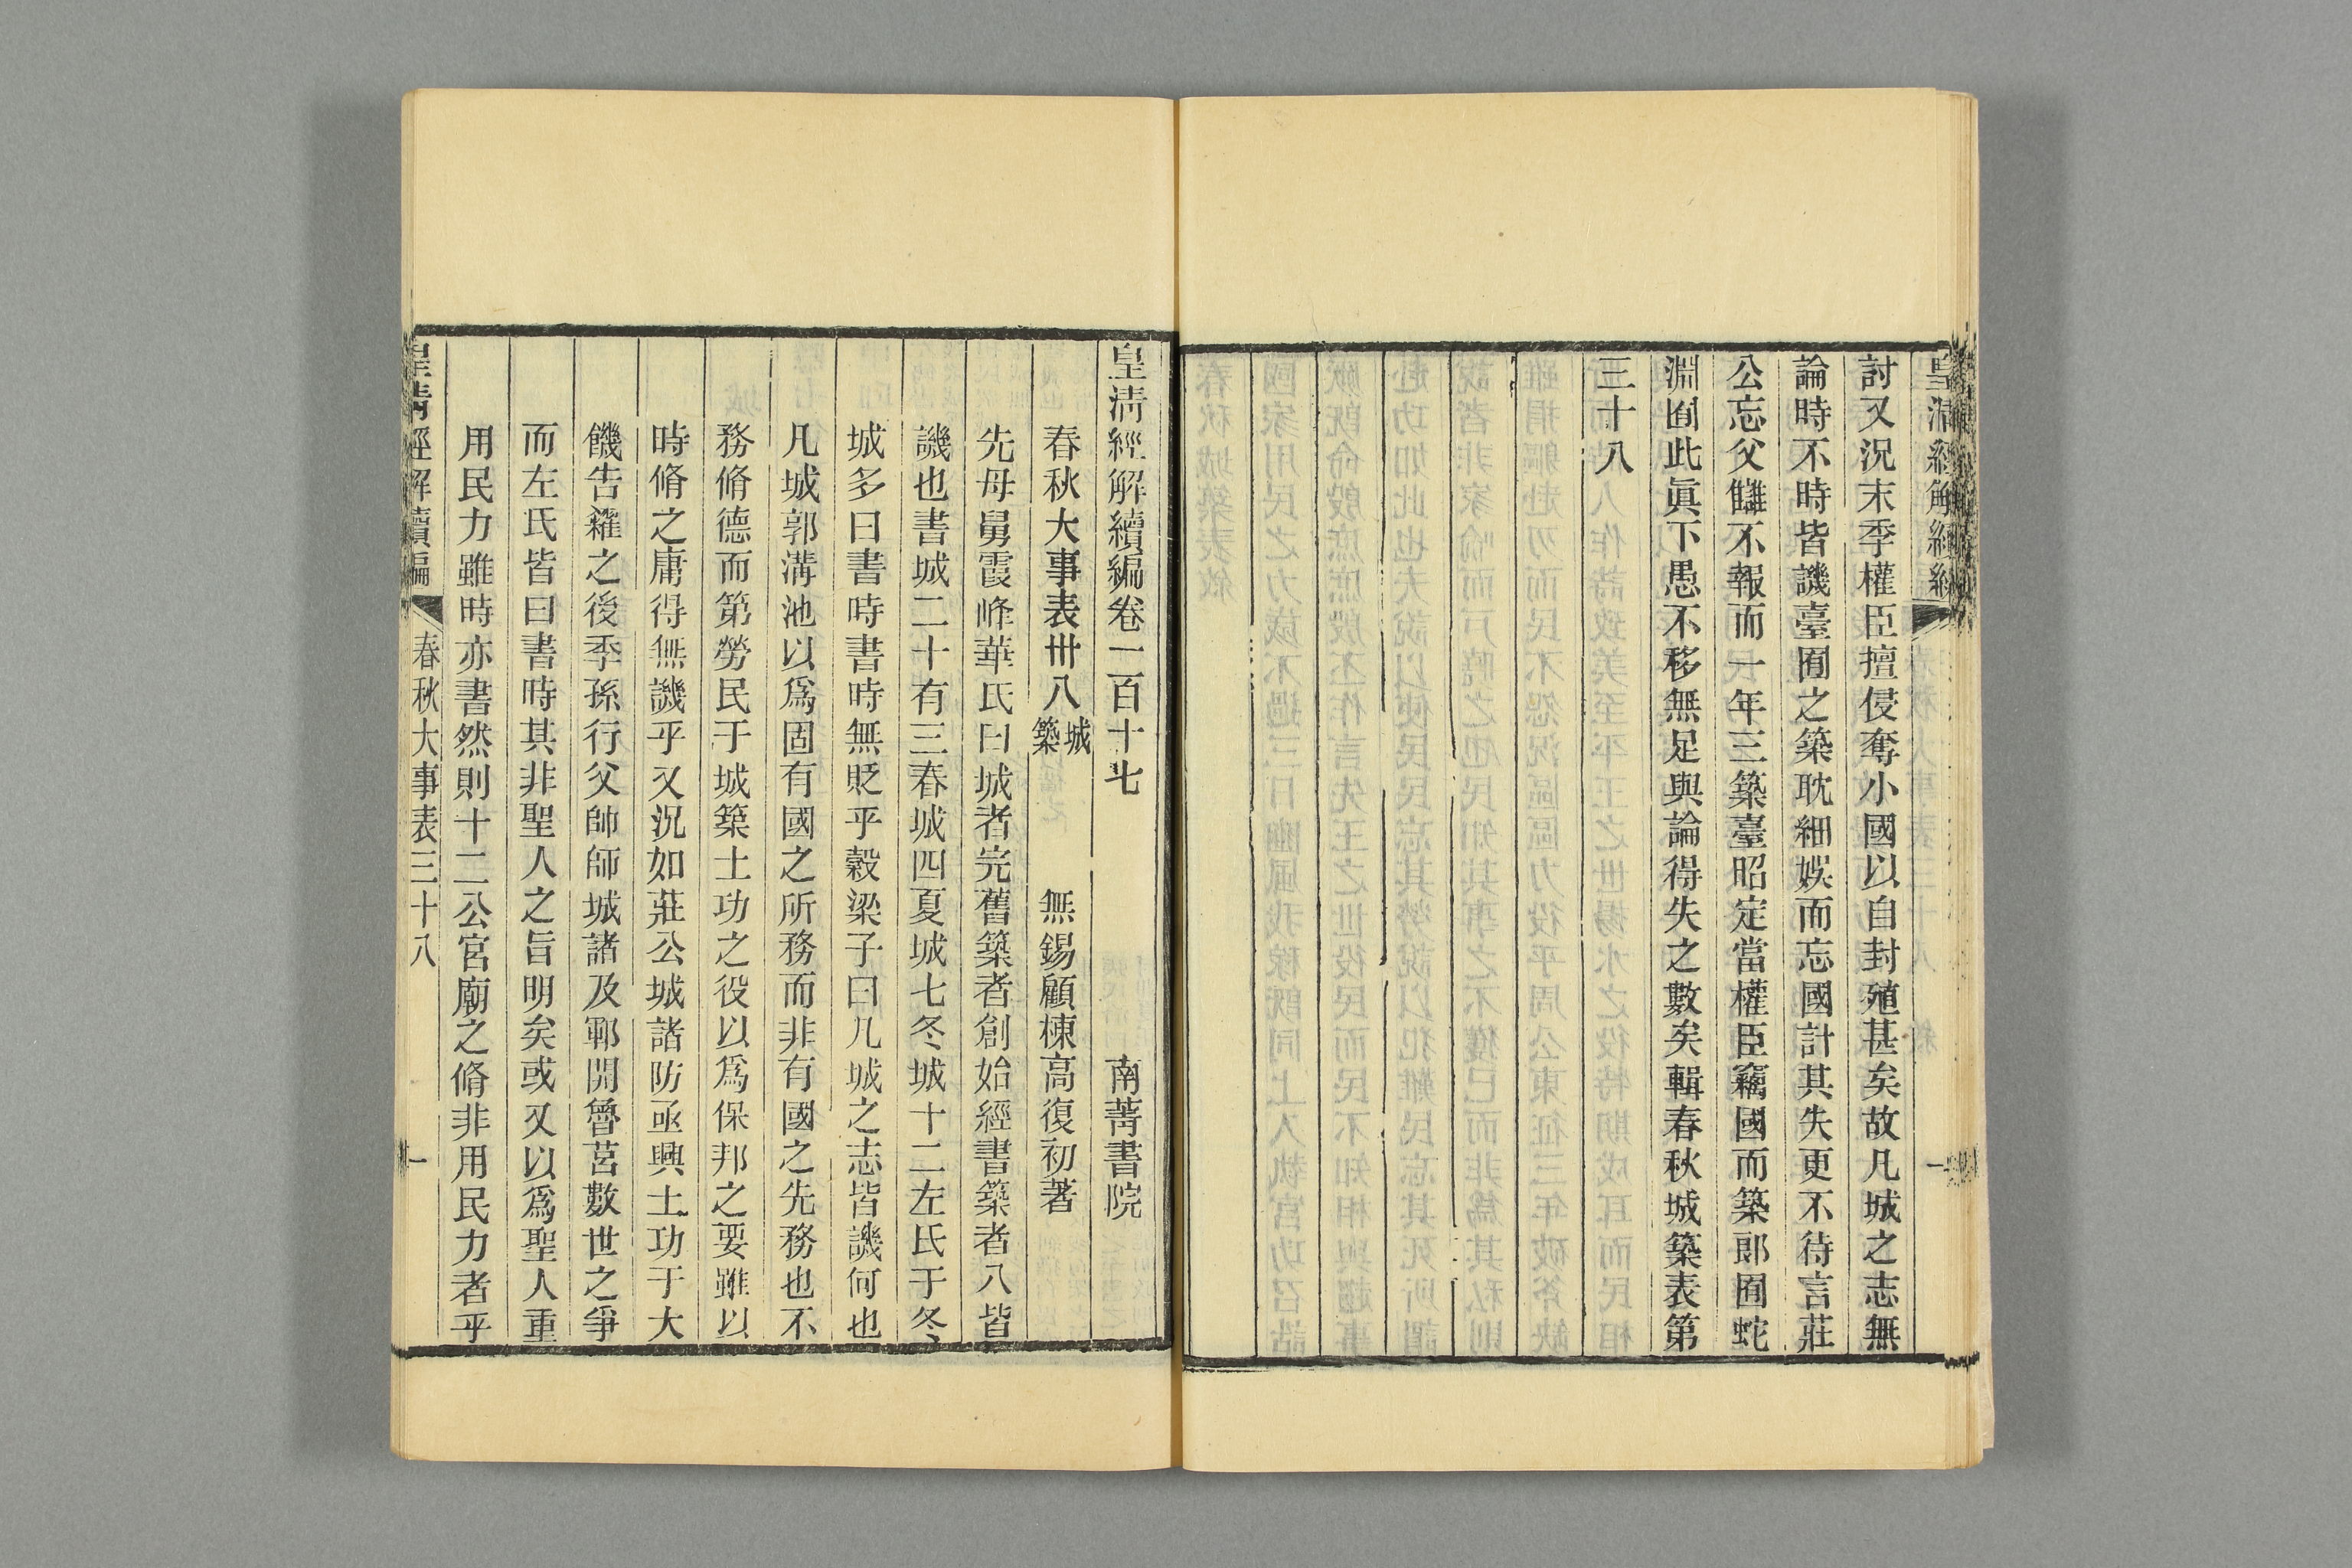 討又況末季權臣擅侵奪小國以自封殖甚矣故凡城之志無
論時不時皆譏臺囿之築耽細娛而忘國計其失更不待言莊
公忘父讎不報而一年三築臺昭定當權臣竊國而築郞囿蛇
淵囿此眞下愚不移無足與論得失之數矣輯春秋城築表第
三十八
皇淸經解續編卷一百十七
南菁書院
春秋大事表卅八城築
無錫顧棟高復初著
先母舅霞峰華氏曰城者完舊築者創始經書築者八皆
譏也書城二十有三春城四夏城七冬城十二左氏于冬
城多曰書時書時無貶乎穀梁子曰凡城之志皆譏何也
凡城郭溝池以爲固有國之所務而非有國之先務也不
務脩德而第勞民于城築土功之役以爲保邦之要雖以
時脩之庸得無譏乎又況如莊公城諸防亟興土功于大
饑告糴之後季孫行父帥師城諸及鄆開魯莒數世之爭
而左氏皆曰書時其非聖人之旨明矣或又以爲聖人重
用民力雖時亦書然則十二公宮廟之脩非用民力者乎
皇淸經解續編
春秋大事表三十八
一